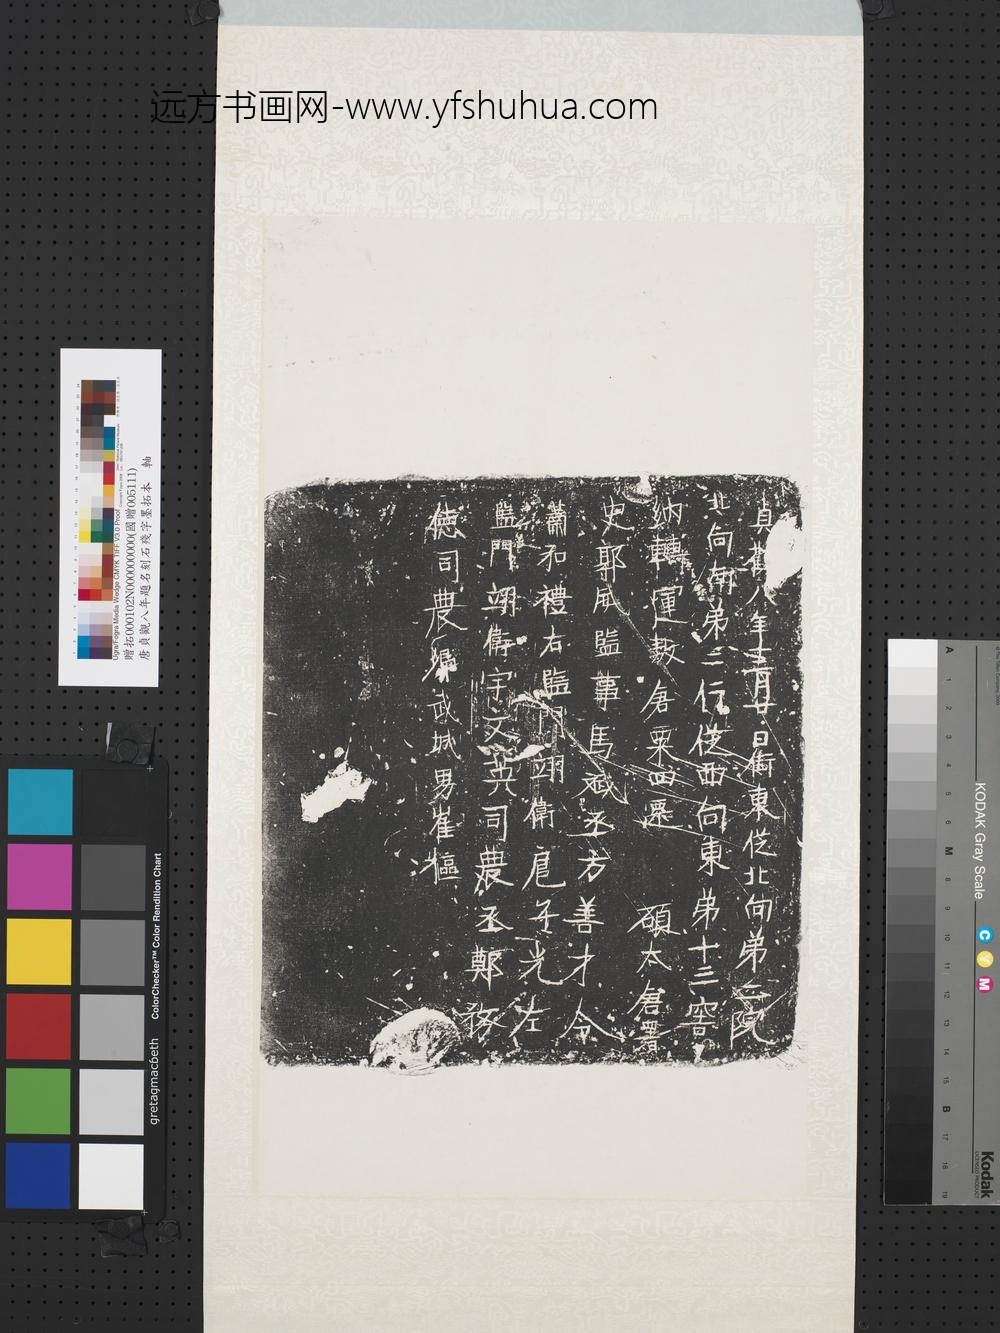 远方书画网-www.yfshuhua.com
貞觀八年十二月廿日街東從北向第二院
北向南第二行從西向東第十三窖
納轉運敖倉粟四 碩太倉署
史郭威監事馬 丞方善才令
蕭和禮右監門翊衛扈年光左
監門翊衛宇文英司農丞鄭
德司農 武城男崔樞
贈拓000102N000000000(國贈005111)
唐貞觀八年題名刻石殘字墨拓本 軸
Ugra/Fogra Media Wedge CMYK TIFF V3.0 Proof
ColorChecker™ Color Rendition Chart
gretagmacbeth
KODAK Gray Scale
C Y M
A 1 2 3 4 5 6 M 8 9 10 11 12 13 14 15 B 17 18 19
Kodak
LICENSED PRODUCT